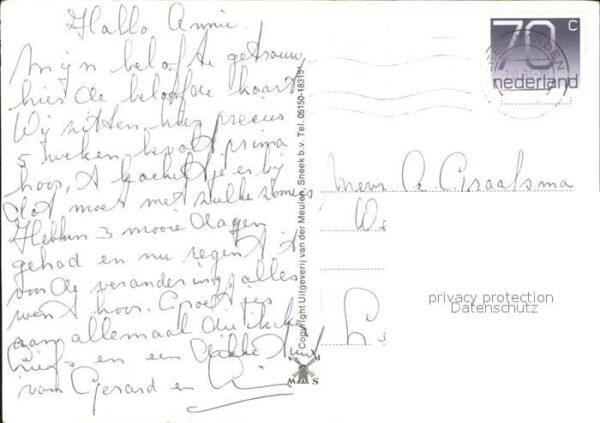 Hallo Annie.
Mijn belofte getrouw
hier de beloofde kaart,
Wij zitten hier precies
5 weken, bevalt prima
hoor, 't kacheltje er bij
dat moet met zulke zomers
Hebben 3 mooie dagen
gehad en nu regent 't
voor de verandering, alles
went hoor. Groetjes
aan allemaal
en een
van Gerard en
© Copyright Uitgeverij van der Meulen, Sneek b.v. Tel. 05150-18315
VVD
MAS
70 c
nederland
Mevr A. Graafsma
privacy protection
Datenschutz